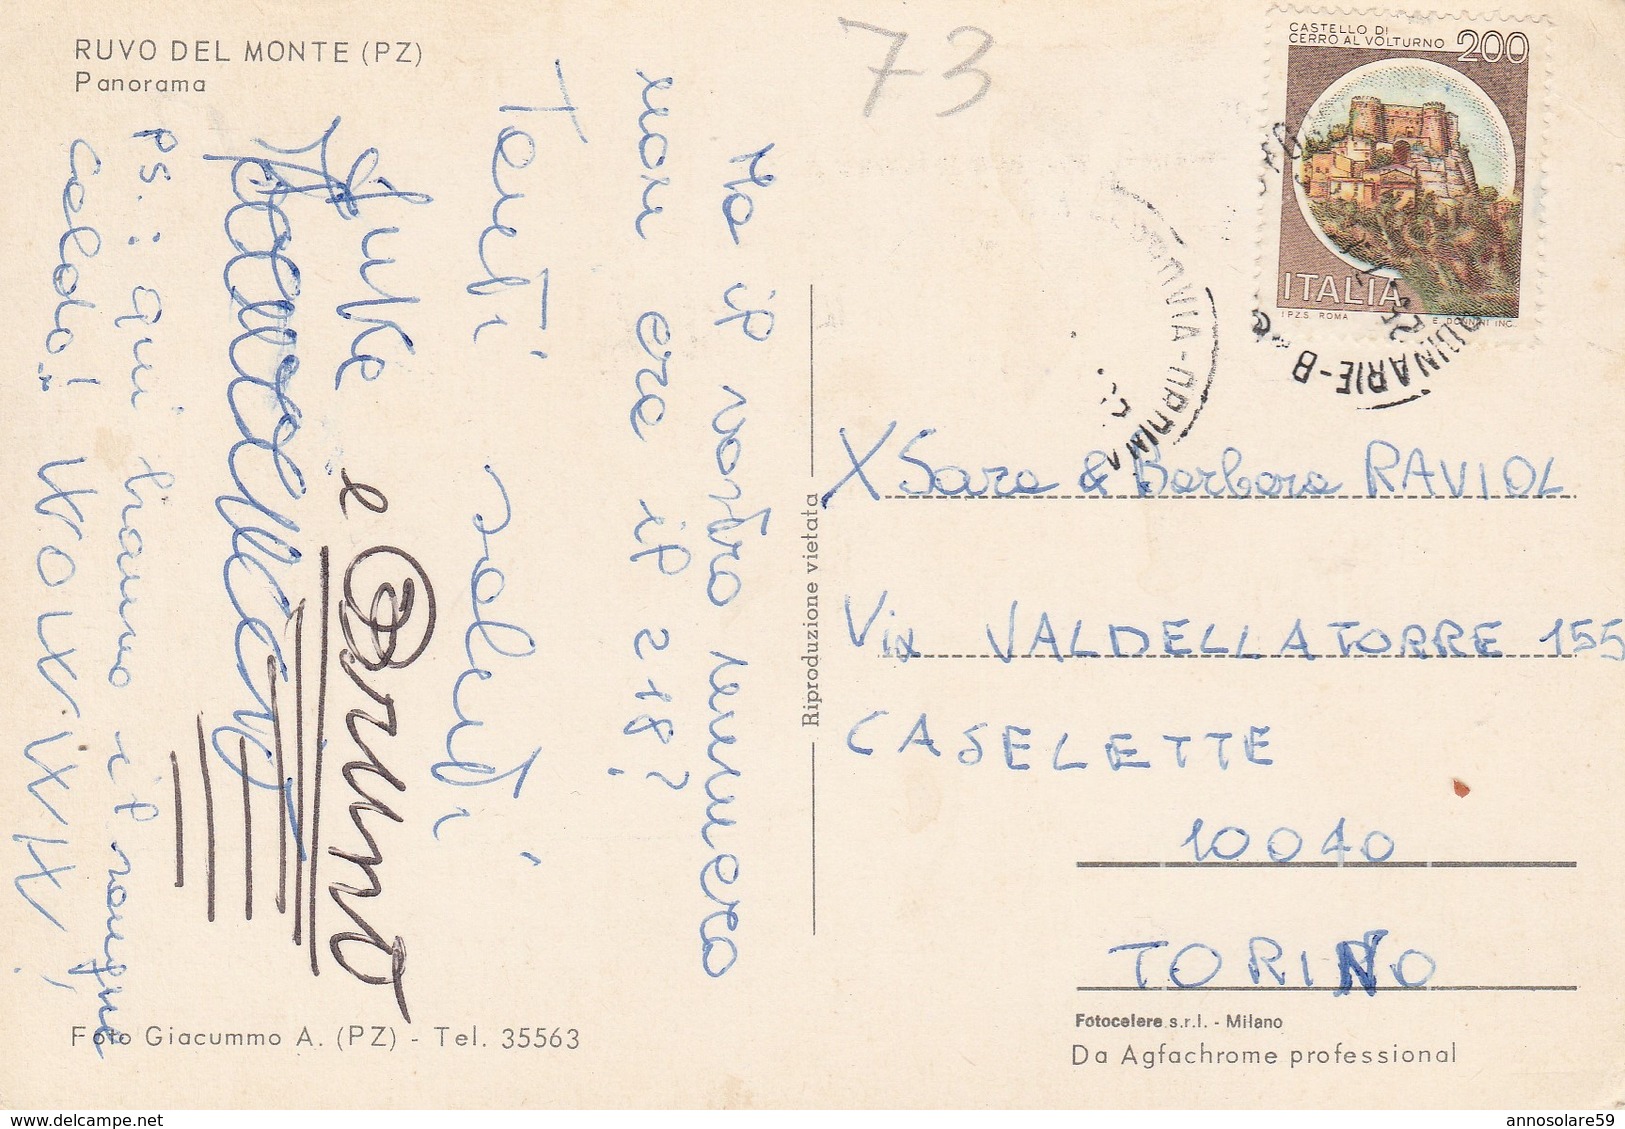 RUVO DEL MONTE (PZ)
Panorama
73
CASTELLO DI
CERRO AL VOLTURNO 200
ITALIA
I.P.Z.S. ROMA E. DONNINI INC.
Ma il vostro numero
non era il 218?
Tanti saluti
e Bruno
PS.: qui hanno il sangue
caldo!
Riproduzione vietata
X Sara & Barbara RAVIOL
Via VALDELLATORRE 155
CASELETTE
10040
TORINO
Foto Giacummo A. (PZ) - Tel. 35563
Fotocelere s.r.l. - Milano
Da Agfachrome professional
annosolare59